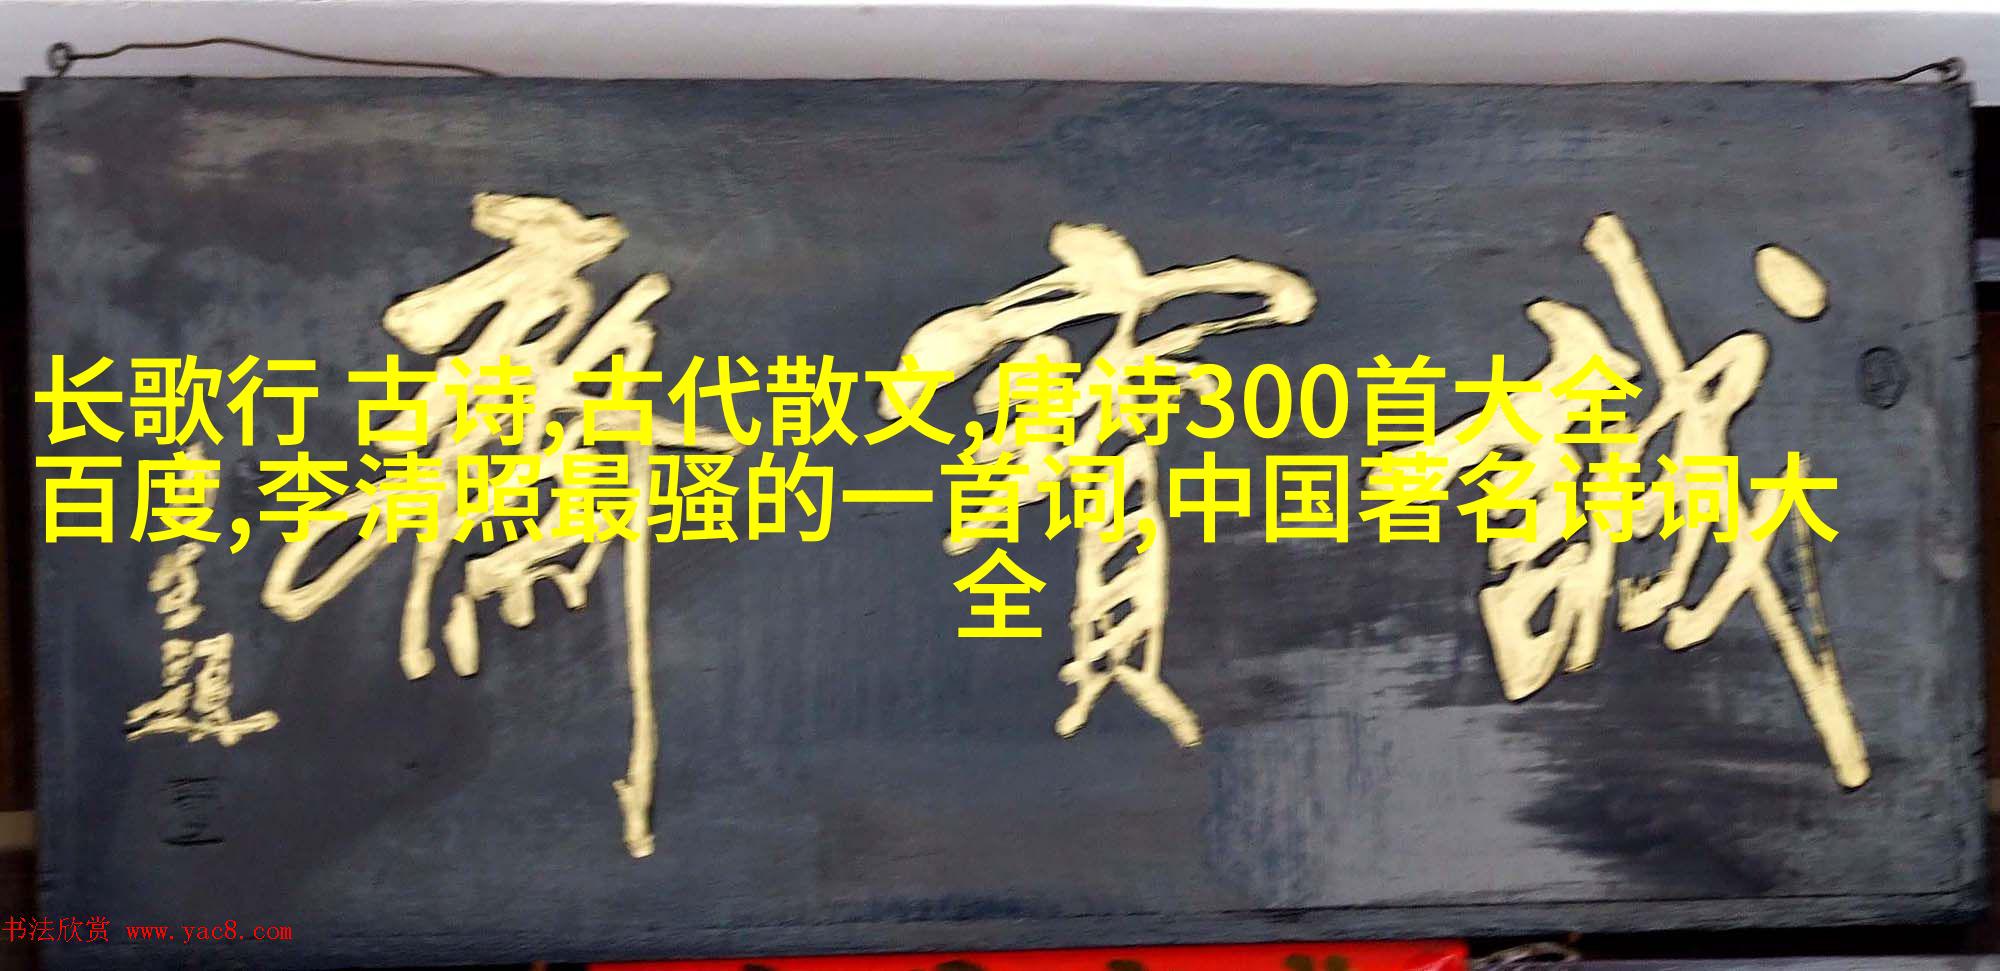 誠寳齋
長歌行 古诗,古代散文,唐诗300首大全
百度,李清照最骚的一首词,中国著名诗词大
全
书法欣赏 www.yac8.com